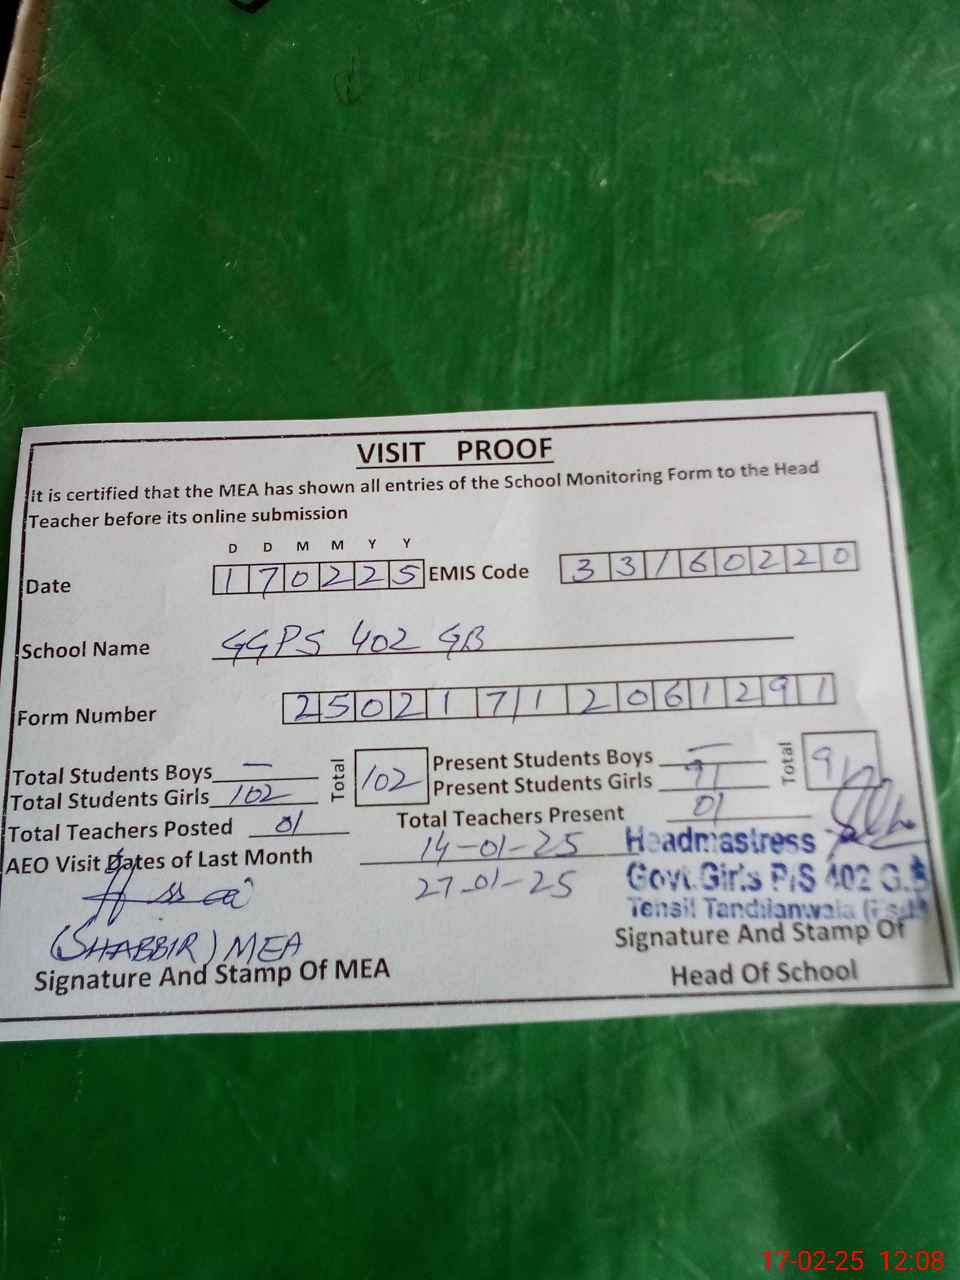 VISIT PROOF
it is certified that the MEA has shown all entries of the School Monitoring Form to the Head
Teacher before its online submission
D D M M Y Y
Date 170225 EMIS Code 33160220
School Name GGPS 402 GB
Form Number 25021712061291
Total Students Boys — Total 102 Present Students Boys — Total 91
Total Students Girls 102 Present Students Girls 91
Total Teachers Posted 01 Total Teachers Present 01
AEO Visit Dates of Last Month 14-01-25
27-01-25
Headmastress
Govt.Girls P/S 402 G.B
Tehsil Tandlianwala (Fsd)
(SHABBIR) MEA
Signature And Stamp Of MEA
Signature And Stamp Of
Head Of School
17-02-25 12:08